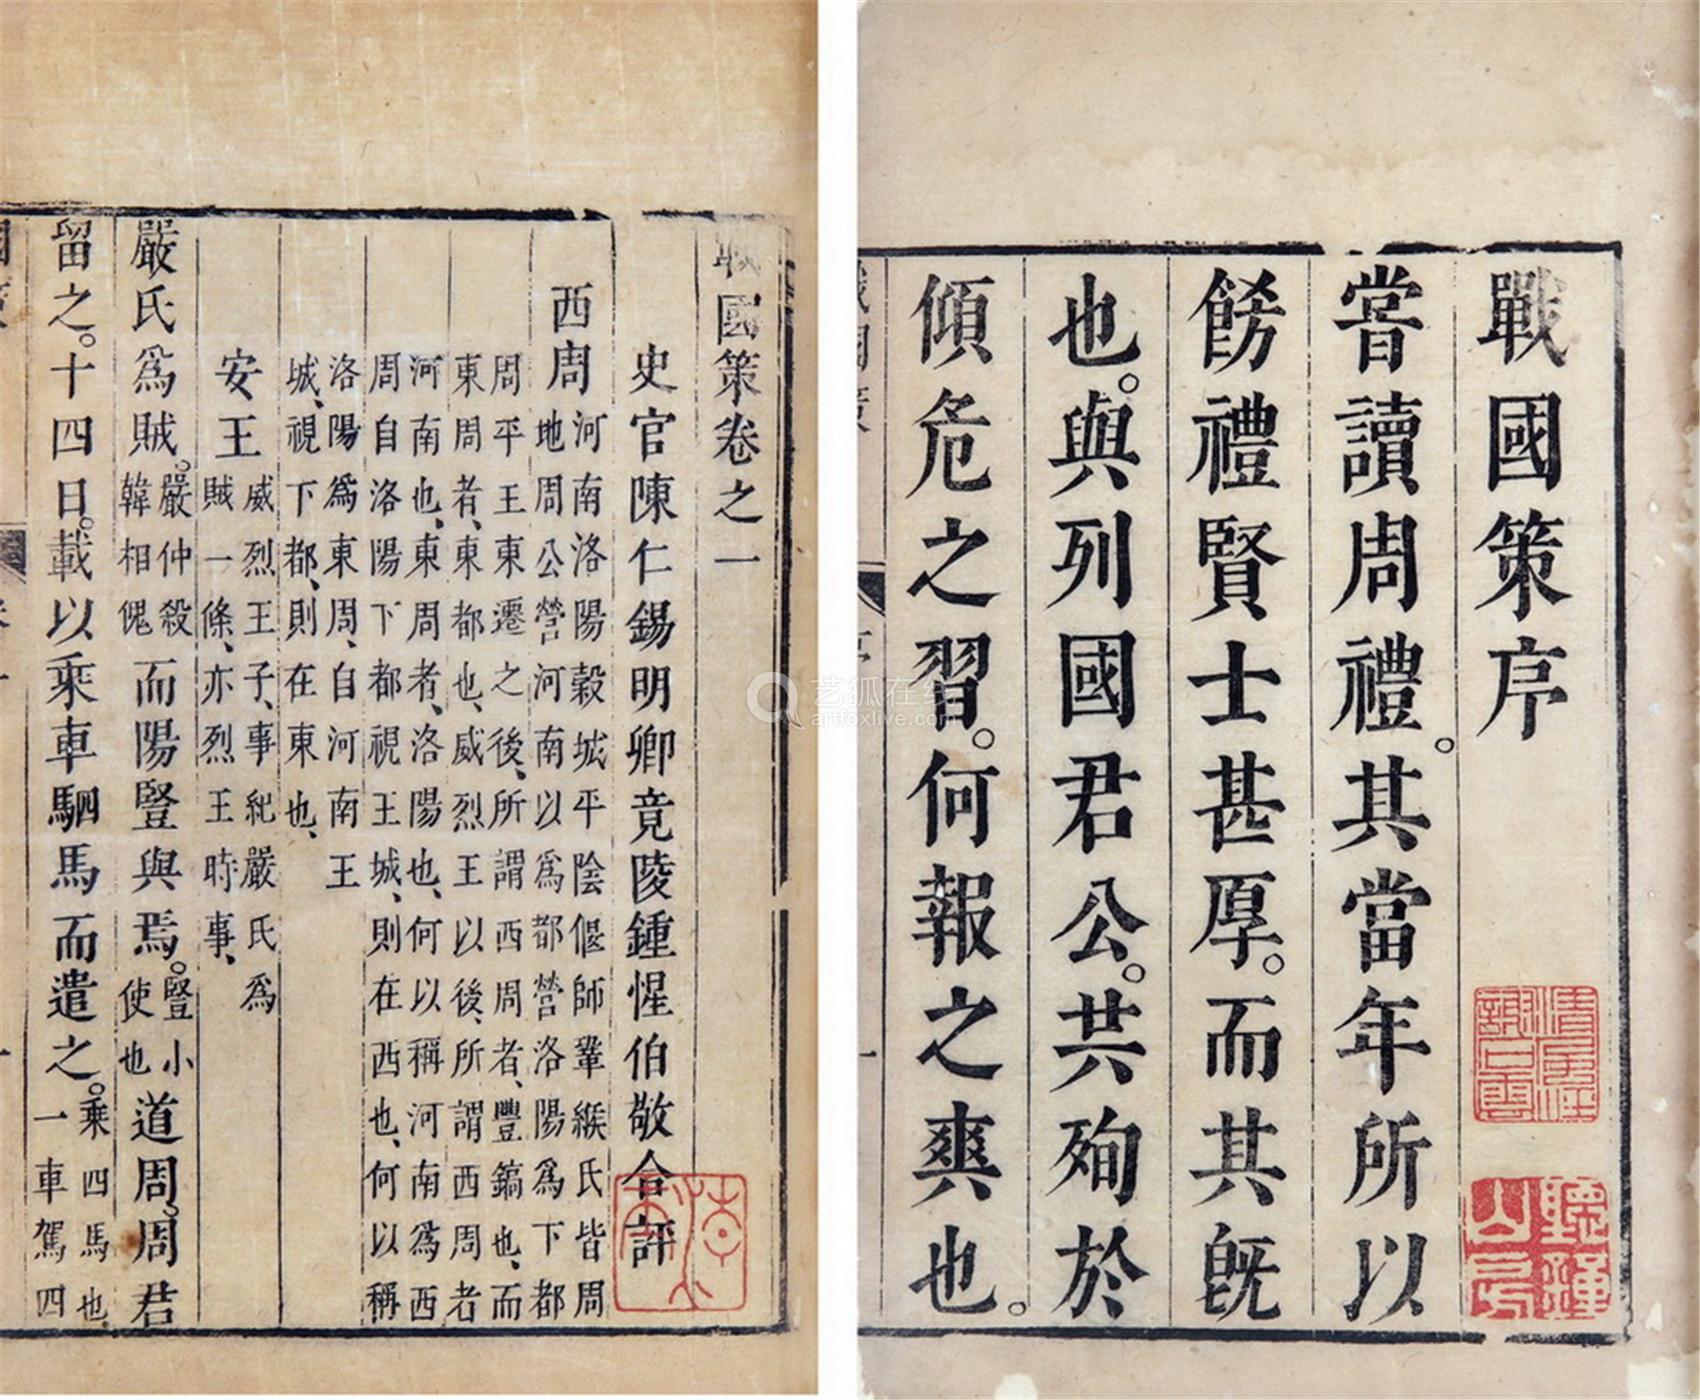 戰國策序
嘗讀周禮。其當年所以
餝禮賢士甚厚。而其旣
也。與列國君公。共殉於
傾危之習。何報之爽也。
戰國策卷之一
史官陳仁錫明卿竟陵鍾惺伯敬合評
西周
河南洛陽榖城平陰偃師鞏緱氏皆周
地周公營河南以爲都營洛陽爲下都
周平王東遷之後、所謂西周者、豐鎬也、而
東周者、東都也、威烈王以後、所謂西周者
河南也、東周者、洛陽也、何以稱河南爲西
周自洛陽下都視王城、則在西也、何以稱
洛陽爲東周、自河南王
城、視下都、則在東也、
安王
威烈王子、事紀嚴氏爲
賊一條、亦烈王時事、
嚴氏爲賊。嚴仲殺韓相傀而陽豎與焉。豎小使也道周。周君
留之。十四日。載以乘車駟馬而遣之。乘四馬也、一車駕四
艺狐在线
artfoxlive.com